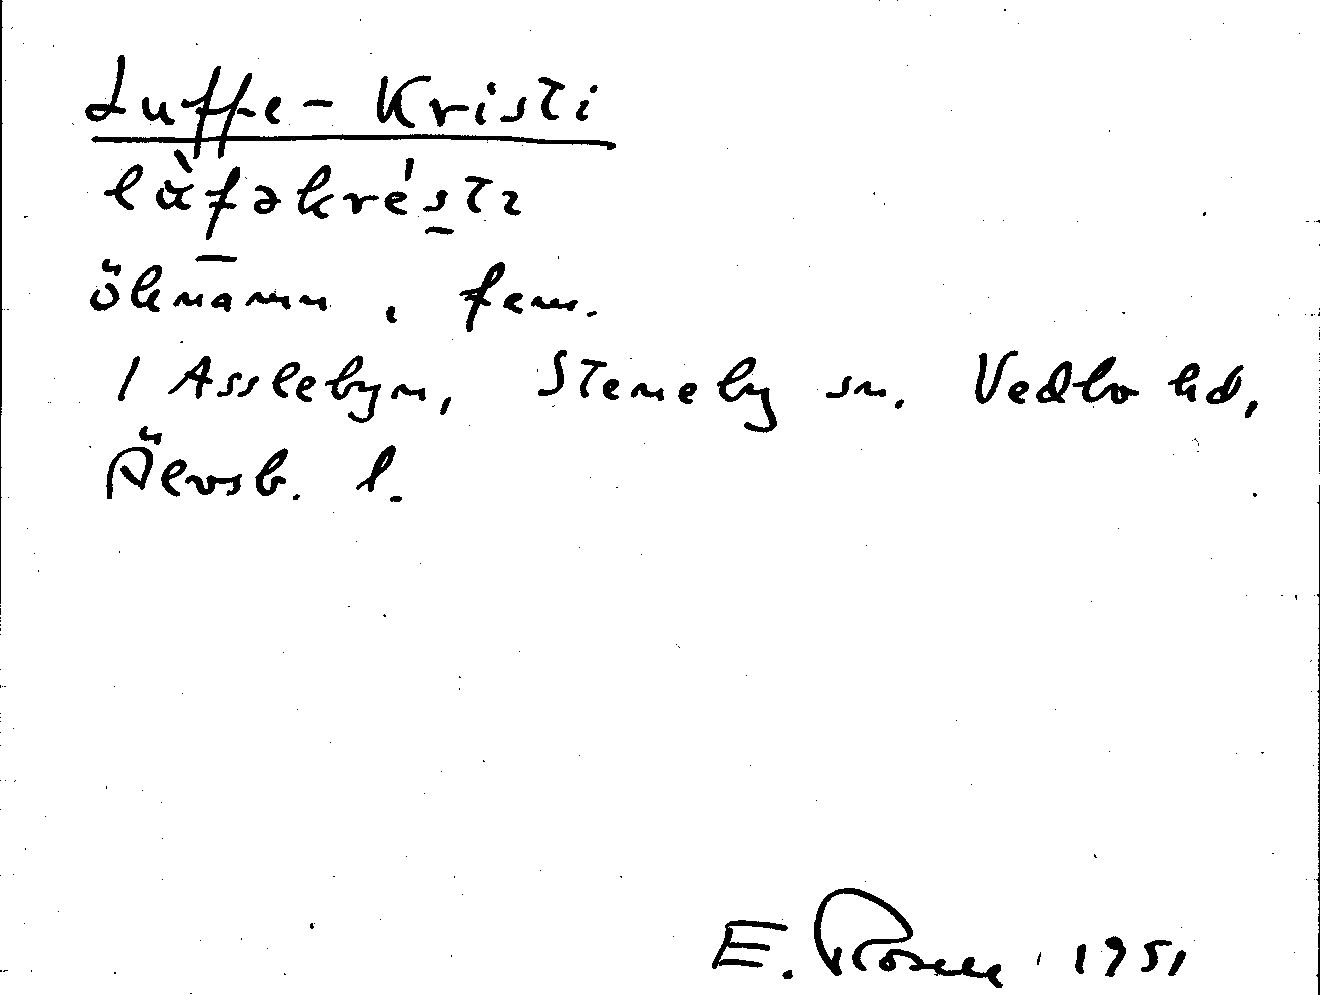 Luffe-Kristi
lùfəkrésti
öknamn, fem.
i Asslebyn, Steneby sn. Vedbo hd,
Älvsb. l.
E. 1951